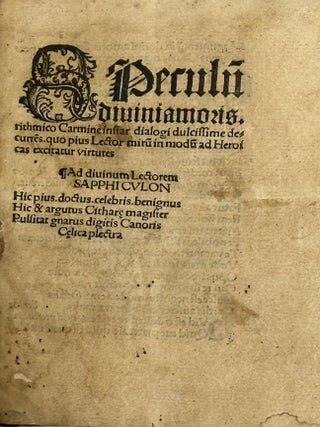 SPeculũ
diuini amoris.
rithmico Carmine instar dialogi dulcissime de-
currẽs. quo pius Lector mirũ in modũ ad Heroi
cas excitatur virtutes
¶Ad diuinum Lectorem
SAPPHICVLON
Hic pius. doctus. celebris. benignus
Hic & argutus Citharę magister
Pulsitat gnarus digitis Canoris
Cęlica plectra